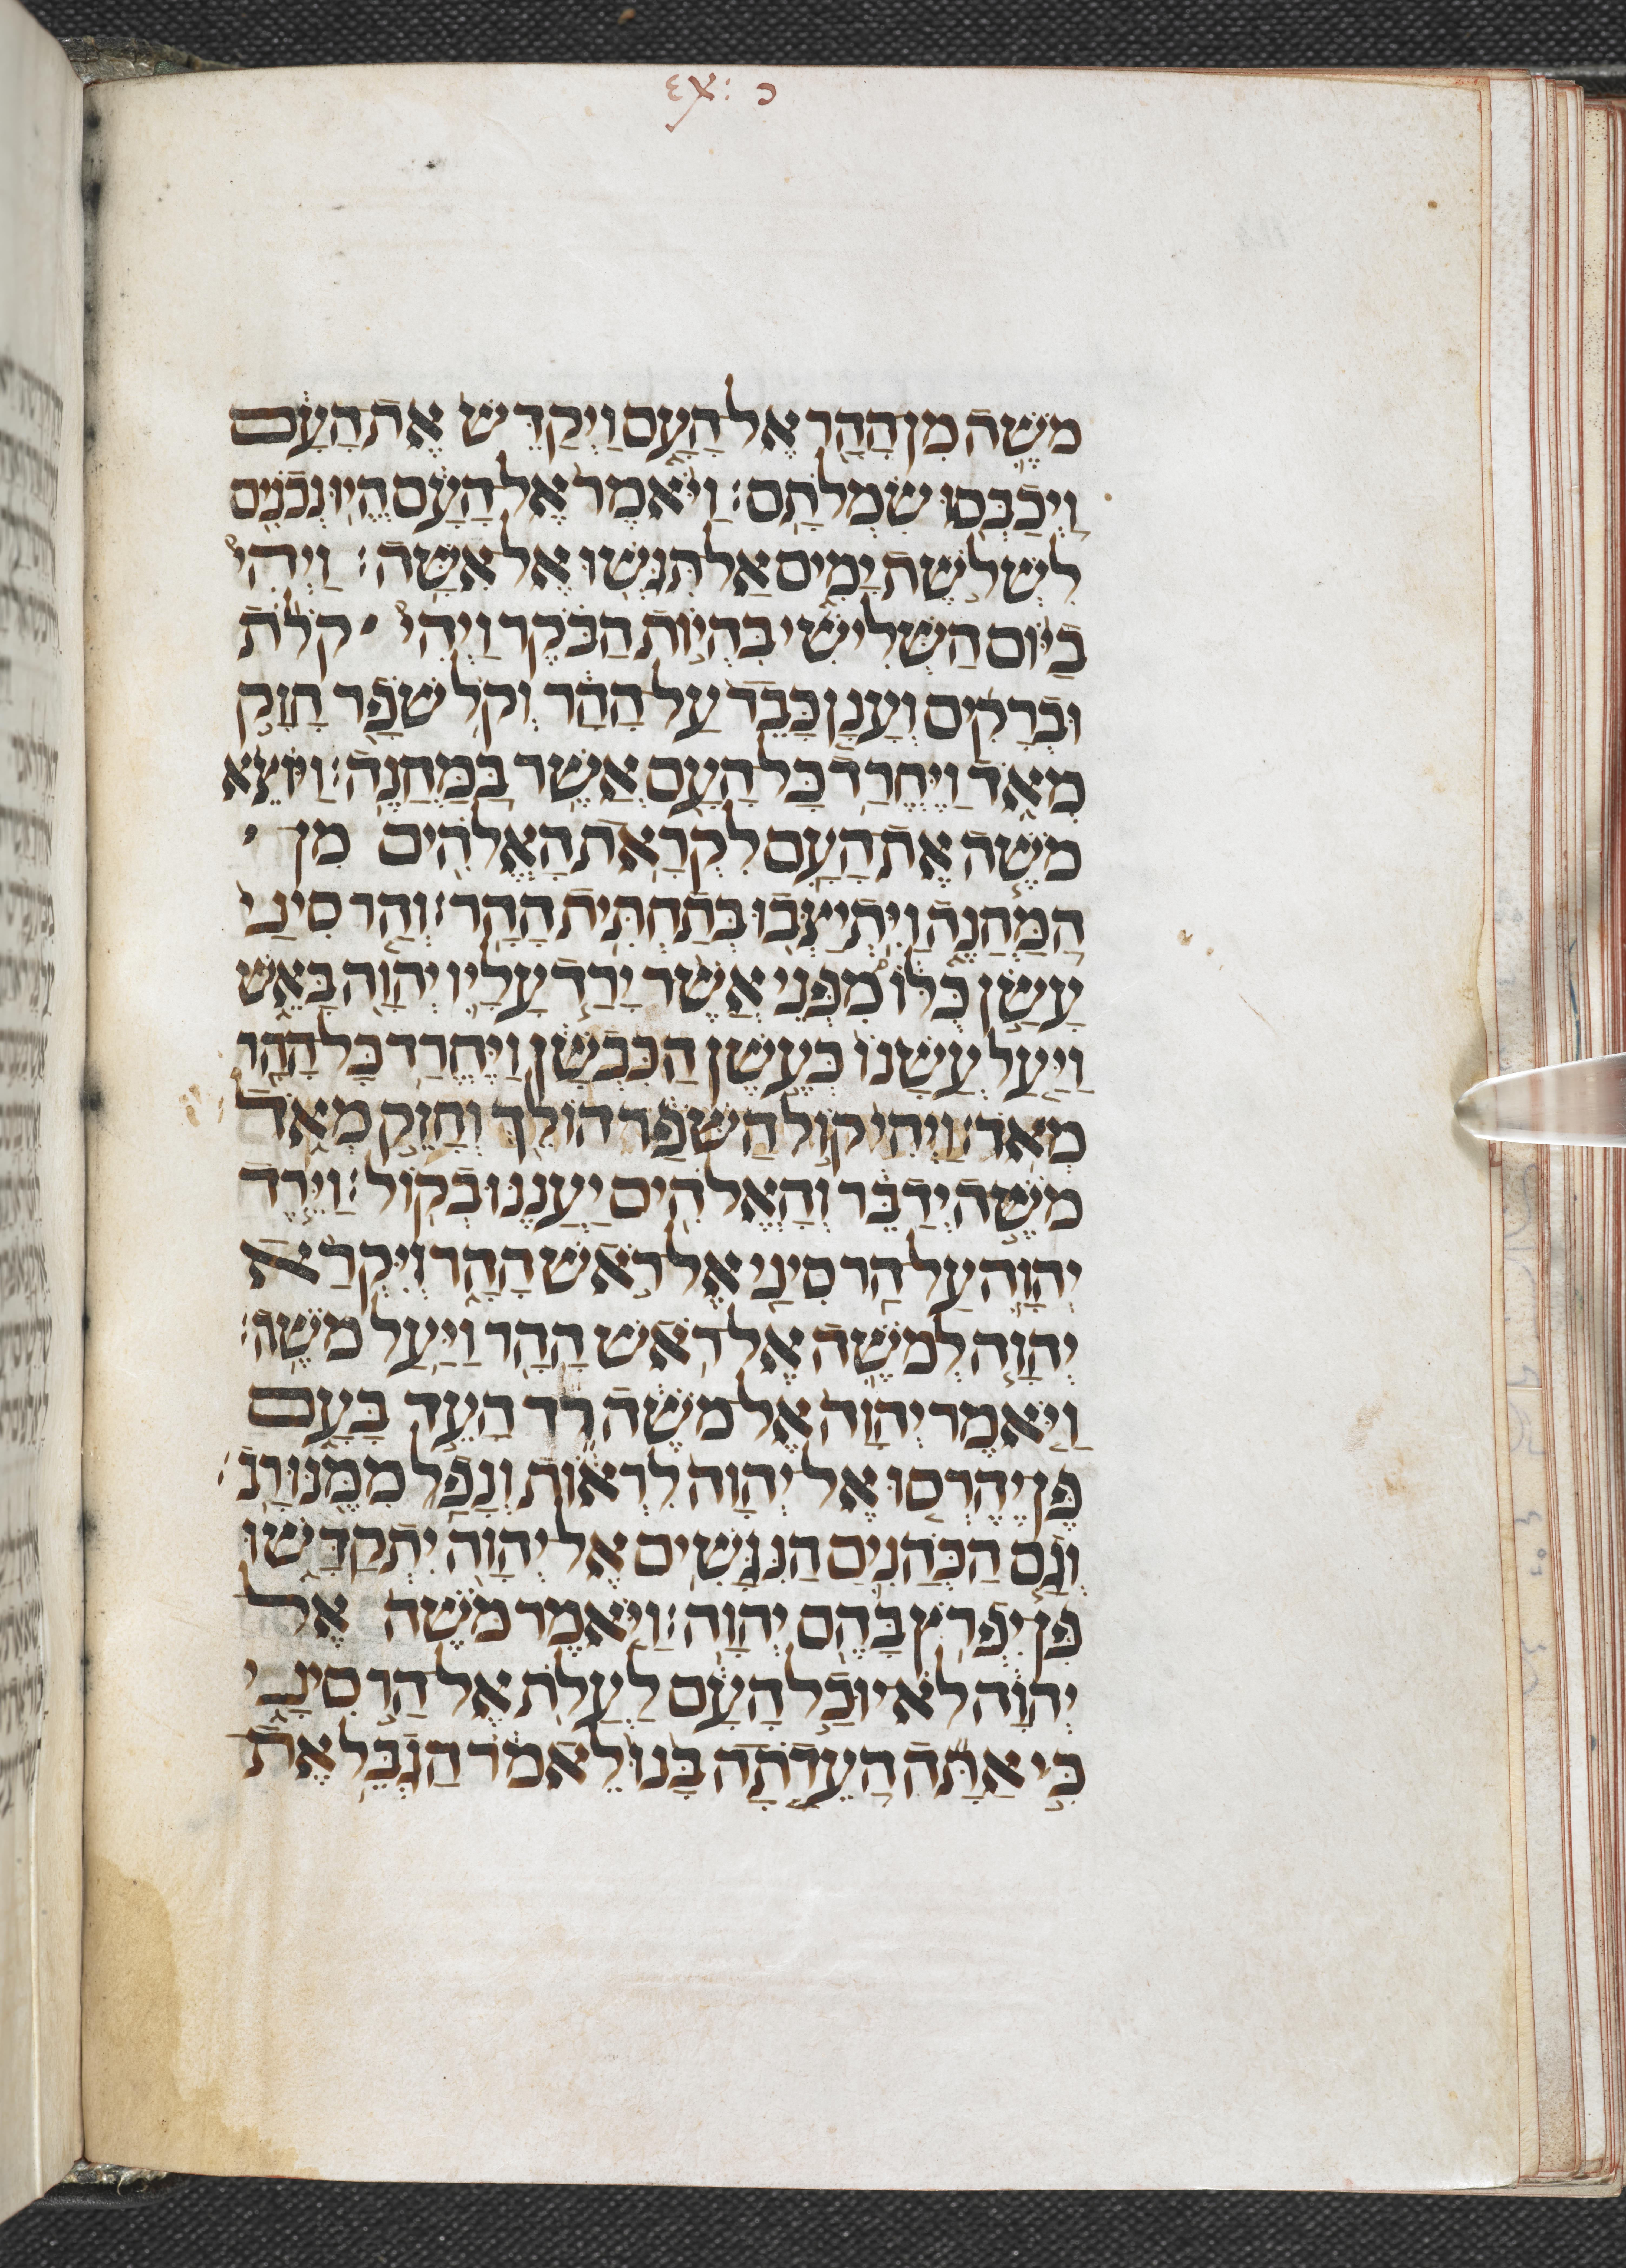 Ex: כ
מֹשֶׁה מִן הָהָר אֶל הָעָם וַיְקַדֵּשׁ אֶת הָעָם
וַיְכַבְּסוּ שִׂמְלֹתָם׃ וַיֹּאמֶר אֶל הָעָם הֱיוּ נְכֹנִים
לִשְׁלֹשֶׁת יָמִים אַל תִּגְּשׁוּ אֶל אִשָּׁה׃ וַיְהִי
בַיּוֹם הַשְּׁלִישִׁי בִּהְיוֹת הַבֹּקֶר וַיְהִי קֹלֹת
וּבְרָקִים וְעָנָן כָּבֵד עַל הָהָר וְקֹל שֹׁפָר חָזָק
מְאֹד וַיֶּחֱרַד כָּל הָעָם אֲשֶׁר בַּמַּחֲנֶה׃ וַיּוֹצֵא
מֹשֶׁה אֶת הָעָם לִקְרַאת הָאֱלֹהִים מִן
הַמַּחֲנֶה וַיִּתְיַצְּבוּ בְּתַחְתִּית הָהָר׃ וְהַר סִינַי
עָשַׁן כֻּלּוֹ מִפְּנֵי אֲשֶׁר יָרַד עָלָיו יְהוָה בָּאֵשׁ
וַיַּעַל עֲשָׁנוֹ כְּעֶשֶׁן הַכִּבְשָׁן וַיֶּחֱרַד כָּל הָהָר
מְאֹד׃ וַיְהִי קוֹל הַשֹּׁפָר הוֹלֵךְ וְחָזֵק מְאֹד
מֹשֶׁה יְדַבֵּר וְהָאֱלֹהִים יַעֲנֶנּוּ בְקוֹל׃ וַיֵּרֶד
יְהוָה עַל הַר סִינַי אֶל רֹאשׁ הָהָר וַיִּקְרָא
יְהוָה לְמֹשֶׁה אֶל רֹאשׁ הָהָר וַיַּעַל מֹשֶׁה׃
וַיֹּאמֶר יְהוָה אֶל מֹשֶׁה רֵד הָעֵד בָּעָם
פֶּן יֶהֶרְסוּ אֶל יְהוָה לִרְאוֹת וְנָפַל מִמֶּנּוּ רָב׃
וְגַם הַכֹּהֲנִים הַנִּגָּשִׁים אֶל יְהוָה יִתְקַדָּשׁוּ
פֶּן יִפְרֹץ בָּהֶם יְהוָה׃ וַיֹּאמֶר מֹשֶׁה אֶל
יְהוָה לֹא יוּכַל הָעָם לַעֲלֹת אֶל הַר סִינָי
כִּי אַתָּה הַעֵדֹתָה בָּנוּ לֵאמֹר הַגְבֵּל אֶת